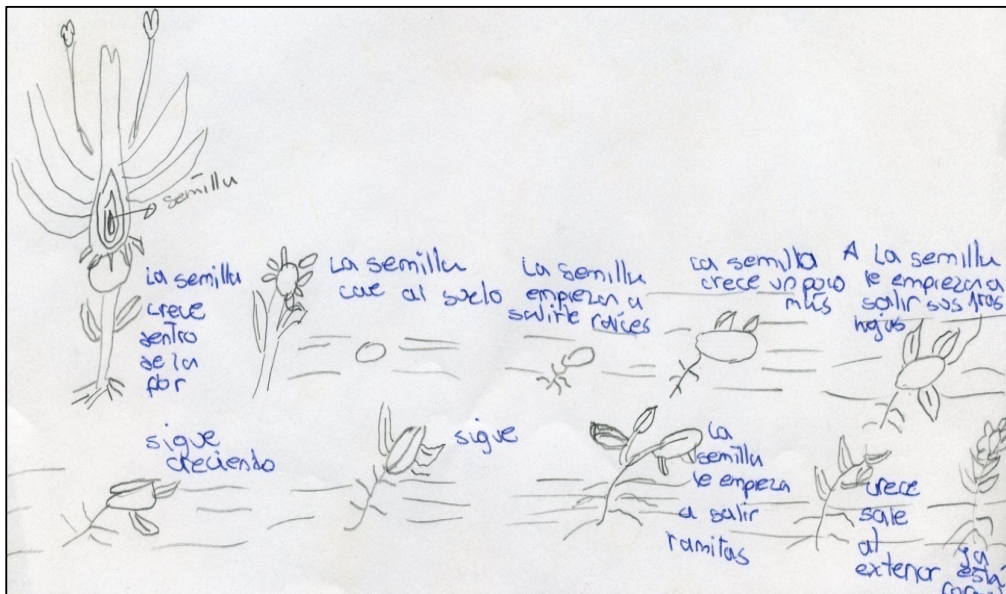 semilla
La semilla
crece
dentro
de la
flor
La semilla
cae al suelo
La semilla
empieza a
salirle raíces
La semilla
crece un poco
más
A La semilla
le empiezan a
salir sus 1ras
hojas
sigue
creciendo
sigue
La
semilla
le empieza
a salir
ramitas
crece
sale
al
exterior
ya
está